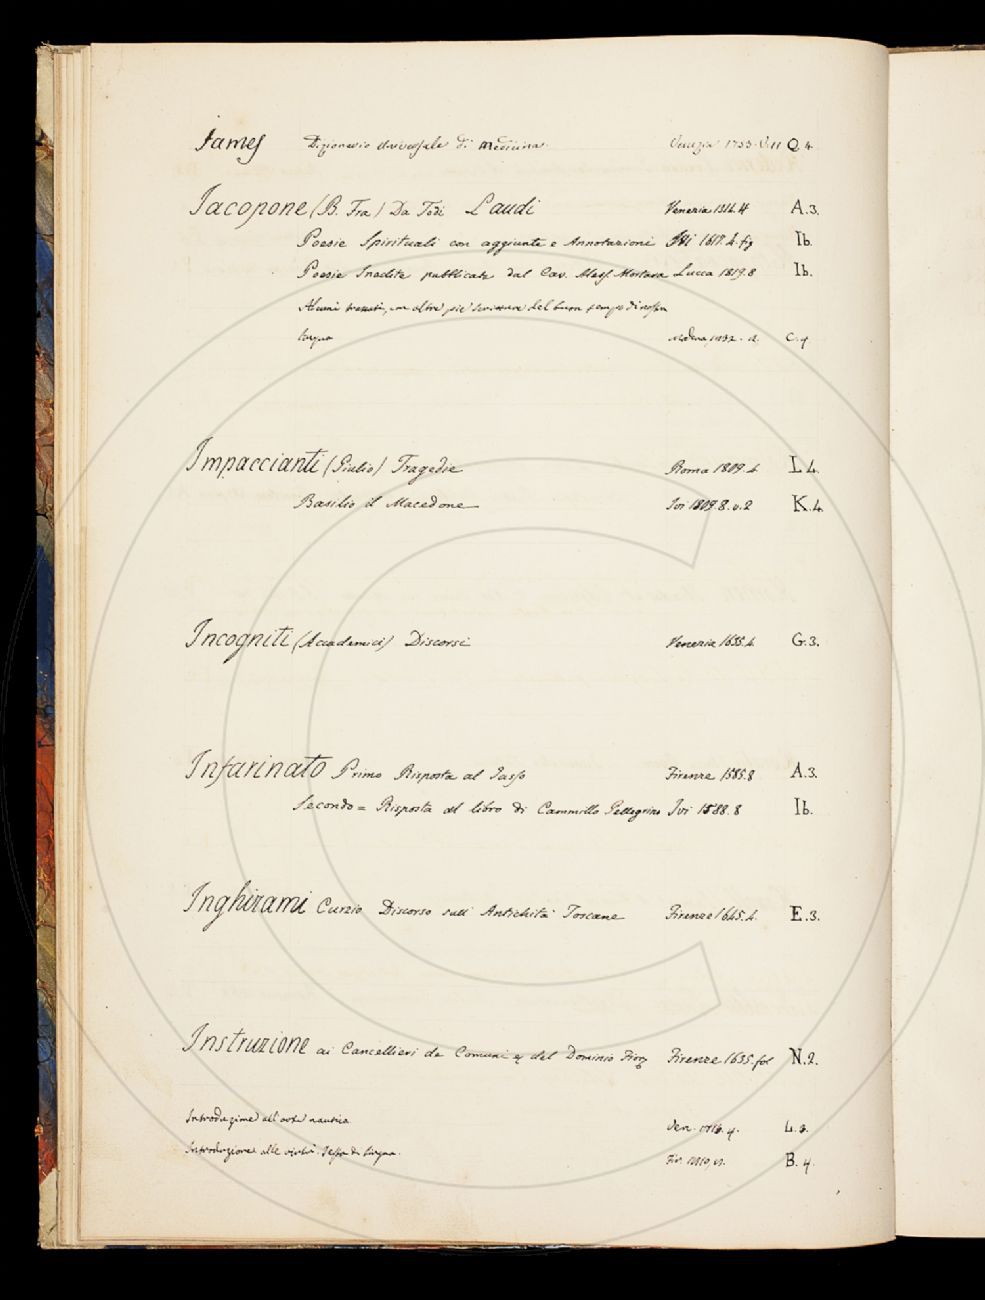 James Dizionario universale di medicina. Venezia 1753. V. 11 Q. 4
Iacopone (B. Fra) Da Todi Laudi Venezia 1514. 4 A. 3.
Poesie Spirituali con aggiunte e Annotazioni Ivi 1617. 4. fig Ib.
Poesie Inedite pubblicate dal Cav. Aless. Mortara Lucca 1819. 8 Ib.
Alcuni trattati, con altre più scritture del buon tempo di nostra
lingua Modena, 1832. C. 4
Impaccianti (Giulio) Tragedie Roma 1809. 4 L 4.
Basilio il Macedone Ivi 1809. 8. v. 2 K. 4
Incogniti (Accademici) Discorsi Venezia 1635. 4. G. 3.
Infarinato Primo Risposta al Tasso Firenze 1585. 8 A. 3.
Secondo = Risposta al libro di Cammillo Pellegrino Ivi 1588. 8 Ib.
Inghirami Curzio Discorso sull' Antichità Toscane Firenze 1645. 4. E. 3.
Instruzione ai Cancellieri de Comuni &c del Dominio Fior. Firenze 1635. fol N. 2.
Introduzione all'arte nautica Ven. 4. L. 3.
Introduzione alle virtù. Testo di lingua. Fir. B. 4.